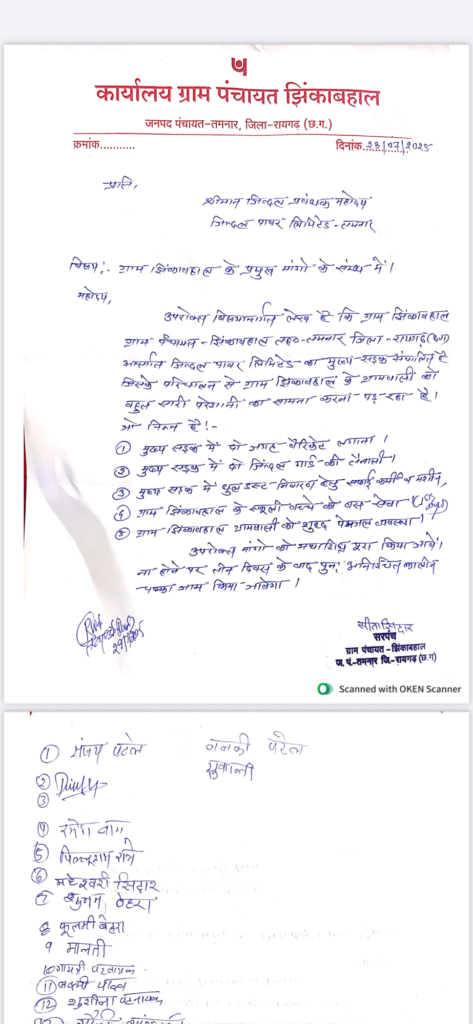 कार्यालय ग्राम पंचायत झिंकाबहाल
जनपद पंचायत-तमनार, जिला-रायगढ़ (छ.ग.)
क्रमांक........... दिनांक. 28/07/2025
प्रति,
श्रीमान जिन्दल प्रबंधक महोदय
जिन्दल पावर लिमिटेड-तमनार
विषय:- ग्राम झिंकाबहाल के प्रमुख मांगो के संबंध में।
महोदय,
उपरोक्त विषयान्तर्गत लेख है कि ग्राम झिंकाबहाल
ग्राम पंचायत-झिंकाबहाल तह०-तमनार जिला-रायगढ़(छ०ग)
अन्तर्गत जिन्दल पावर लिमिटेड का मुख्य सड़क संचालित है
जिसके परिचालन से ग्राम झिंकाबहाल के ग्रामवासी को
बहुत सारी परेशानी का सामना करना पड़ रहा है।
जो निम्न है!-
① मुख्य सड़क में दो जगह बैरिकेट लगाना।
② मुख्य सड़क में दो जिंदल गार्ड की तैनाती।
③ मुख्य सड़क में धुल डस्ट निवारण हेतु सफाई कर्मी व मशीन,
④ ग्राम झिंकाबहाल के स्कूली बच्चे को बस सेवा
⑤ ग्राम झिंकाबहाल ग्रामवासी को शुद्ध पेयजल व्यवस्था!
उपरोक्त मांगो को यथाशिघ्र पूरा किया जावें।
ना होने पर तीन दिवस के बाद पुनः अनिश्चित कालीन
चक्का जाम किया जावेगा।
सरपंच
ग्राम पंचायत-झिंकाबहाल
ज. पं.-तमनार जि.-रायगढ़ (छ.ग)
Scanned with OKEN Scanner
① संजय पटेल ननकी पटेल
② सुकान्ती
③
४ रमेश बाग
5
⑥ महेश्वरी सिदार
7
8
9 मालती
10
⑪ लक्ष्मी यादव
⑫